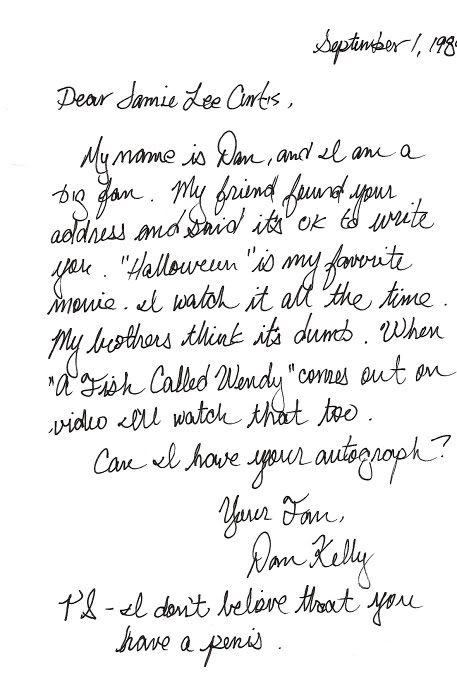 September 1, 198
Dear Jamie Lee Curtis,
My name is Dan, and I am a
big fan. My friend found your
address and said it's OK to write
you. "Halloween" is my favorite
movie. I watch it all the time.
My brothers think it's dumb. When
"A Fish Called Wendy" comes out on
video I'll watch that too.
Can I have your autograph?
Your Fan,
Dan Kelly
PS - I don't belove that you
have a penis.